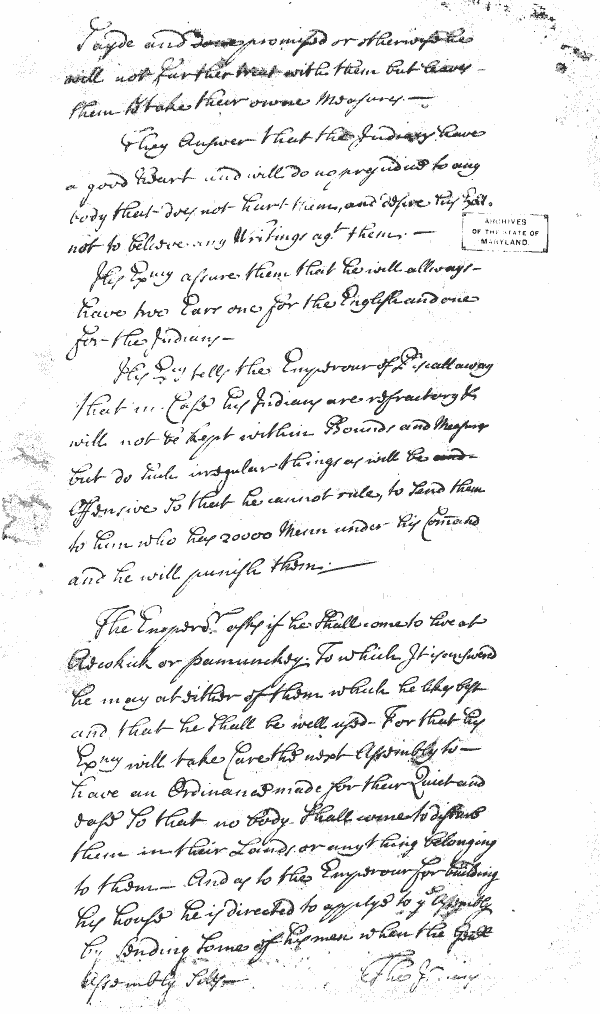 Sayde and done promised or otherwise he
will not further treat with them but leaves
them to take their owne Measures.—
They Answer that the Indians have
a good heart and will do no prejudice to any
body that does not hurt them, and desire his Exc.
not to believe any Writings agt them.—
ARCHIVES
OF THE STATE OF
MARYLAND.
His Excy assure them that he will allways
have two Ears one for the English and one
for the Indians—
His Excy tells the Emperour of Piscattaway
that in Case his Indians are refractory &
will not be kept within Bounds and Measures
but do such irregular things as will be and
Offensive So that he cannot rule, to Send them
to him who has 20000 Menn under his Comand
and he will punish them.—
The Emperor asks if he Shall come to live at
or pamunkey. To which It is answered
he may at either of them which he likes best
and that he Shall be well used. For that his
Excy will take Care the next Assembly to—
have an Ordinance made for their Quiet and
ease So that no body Shall come to disturb
them in their Lands or any thing belonging
to them— And as to the Emperour for building
his house he is directed to applye to ye Assembly
by Sending Some of his men when the Genll
Assembly Sitts—
The